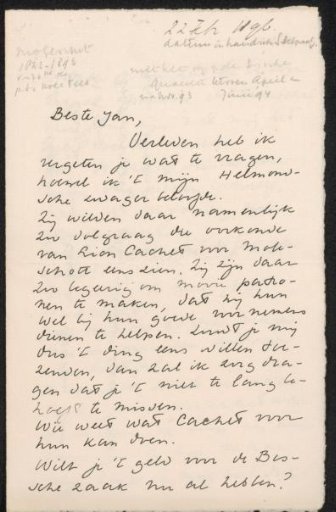 22 Febr 1896.
Beste Jan,
Verleden heb ik
vergeten je wat te vragen,
hoewel ik 't mijn Helmond-
sche zwager beloofde.
Zij wilden daar namenlijk
zoo dolgraag die oorkonde
van Lion Cachet voor Mole-
schott eens zien. Zij zijn daar
zoo begeerig om mooie patro-
nen te maken, dat wij hun
wel bij hun goede voornemens
dienen te helpen. Zoudt je mij
dus 't ding eens willen toe-
zenden, dan zal ik zorg dra-
gen dat je 't niet te lang be-
hoeft te missen.
Wie weet wat Cachet voor
hun kan doen.
Wilt je 't geld voor de Bos-
sche zaak nu al hebben?